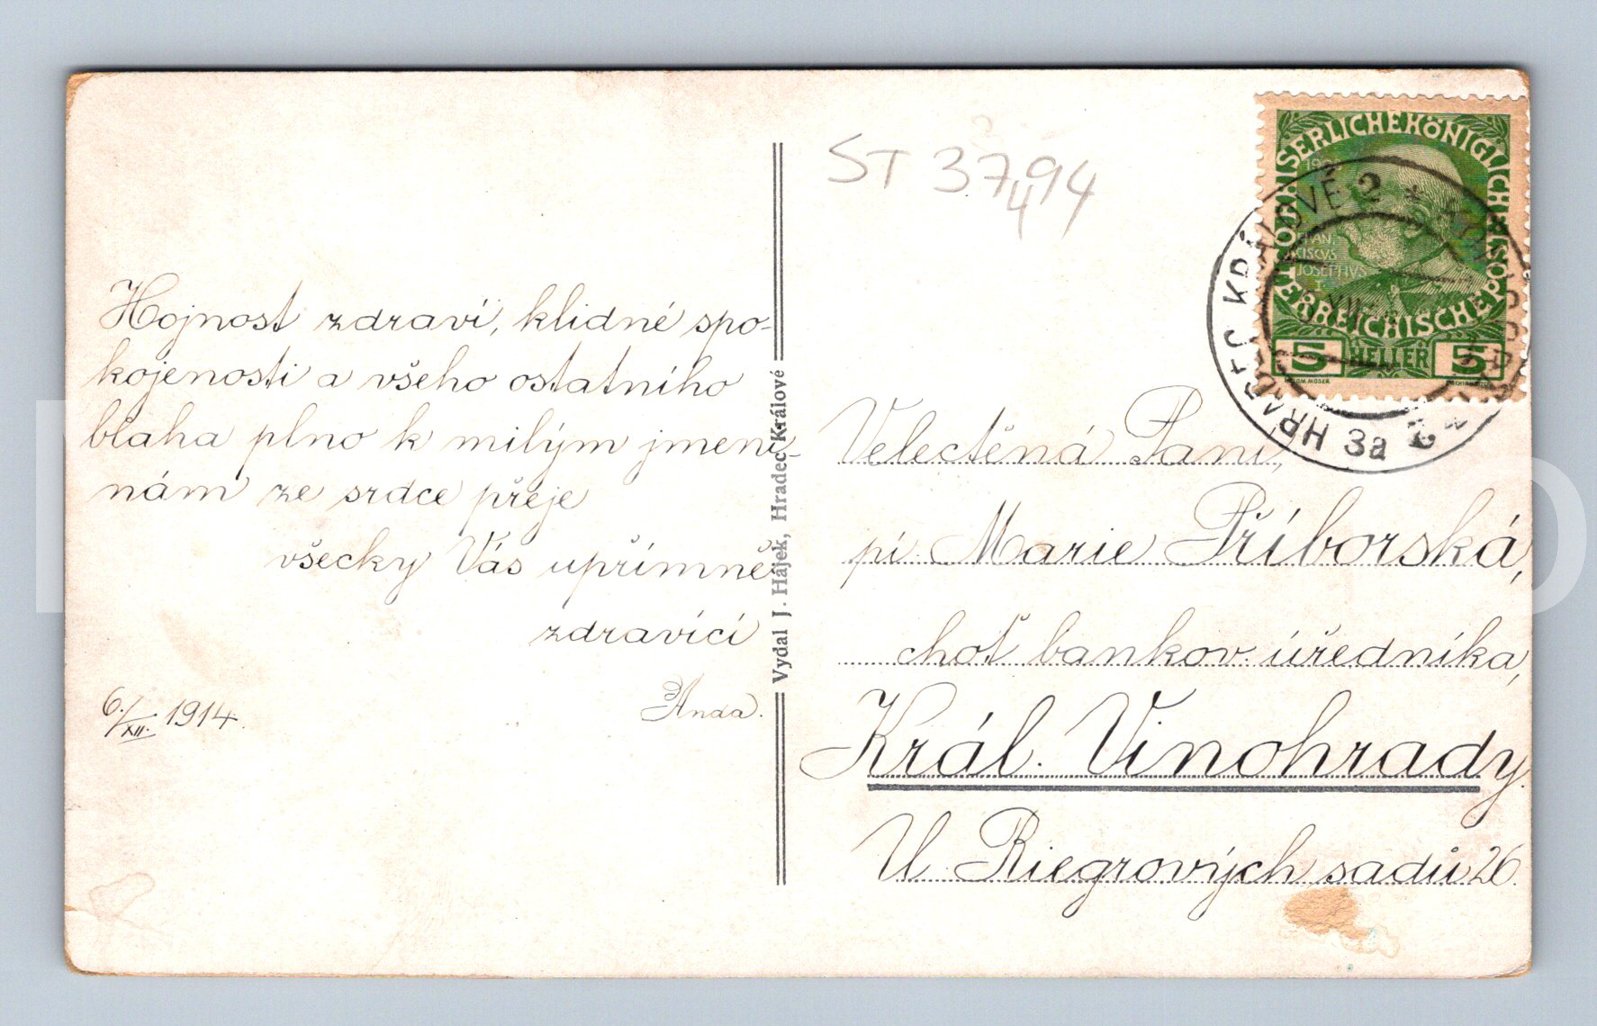 Hojnost zdraví, klidné spo-
kojenosti a všeho ostatního
blaha plno k milým jmeni-
nám ze srdce přeje
všecky Vás upřímně
zdravící
Anda.
6./XII. 1914.
Vydal J. Hájek, Hradec Králové
ST 37494
KAISERLICHEKÖNIGLICHE ÖSTERREICHISCHE POST
1908
FRANCISCUS
JOSEPHVS
I
5 HELLER 5
HRADEC KRÁLOVÉ 2 *
3a
XII
Velectěná Paní,
pí. Marie Příborská,
choť bankov. úředníka,
Král. Vinohrady.
U Riegrových sadů 26.